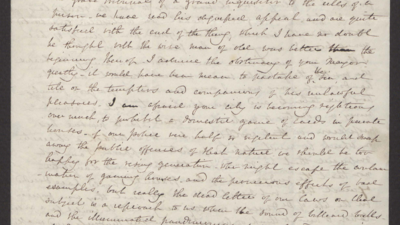 of a grand inquisitor to the cells of a
prison. We have read his eloquent appeal, and are quite
satisfied with the end of the thing, which I have no doubt
he thought with the wise man of old was better than the
beginning thereof. I admire the obstinacy of your Mayor
greatly — it would have been mean to partake of and
tile on the tempters and companions of his unlawful
pleasures. I am afraid your city is becoming righteous
over much, to prohibit a domestic game of in private
houses. If our police were half so vigilant and would
among the public offences of that nature we should be too
happy for the rising generation. We might escape the
of gaming houses, and the pernicious effects of such
examples, but really the dead letter of our laws on that
subject is a reproach to us when the sound of billiard balls
and the